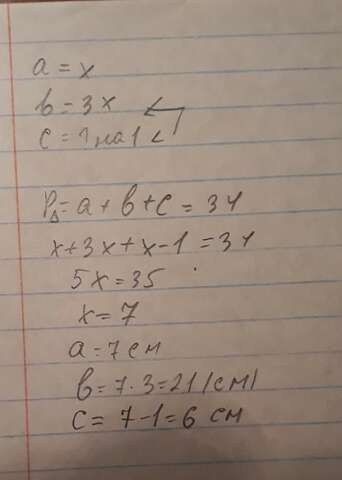 a = x
b = 3x
c = ? на 1 <
P△ = a + b + c = 34
x + 3x + x - 1 = 34
5x = 35
x = 7
a = 7 см
b = 7 · 3 = 21 (см)
c = 7 - 1 = 6 см